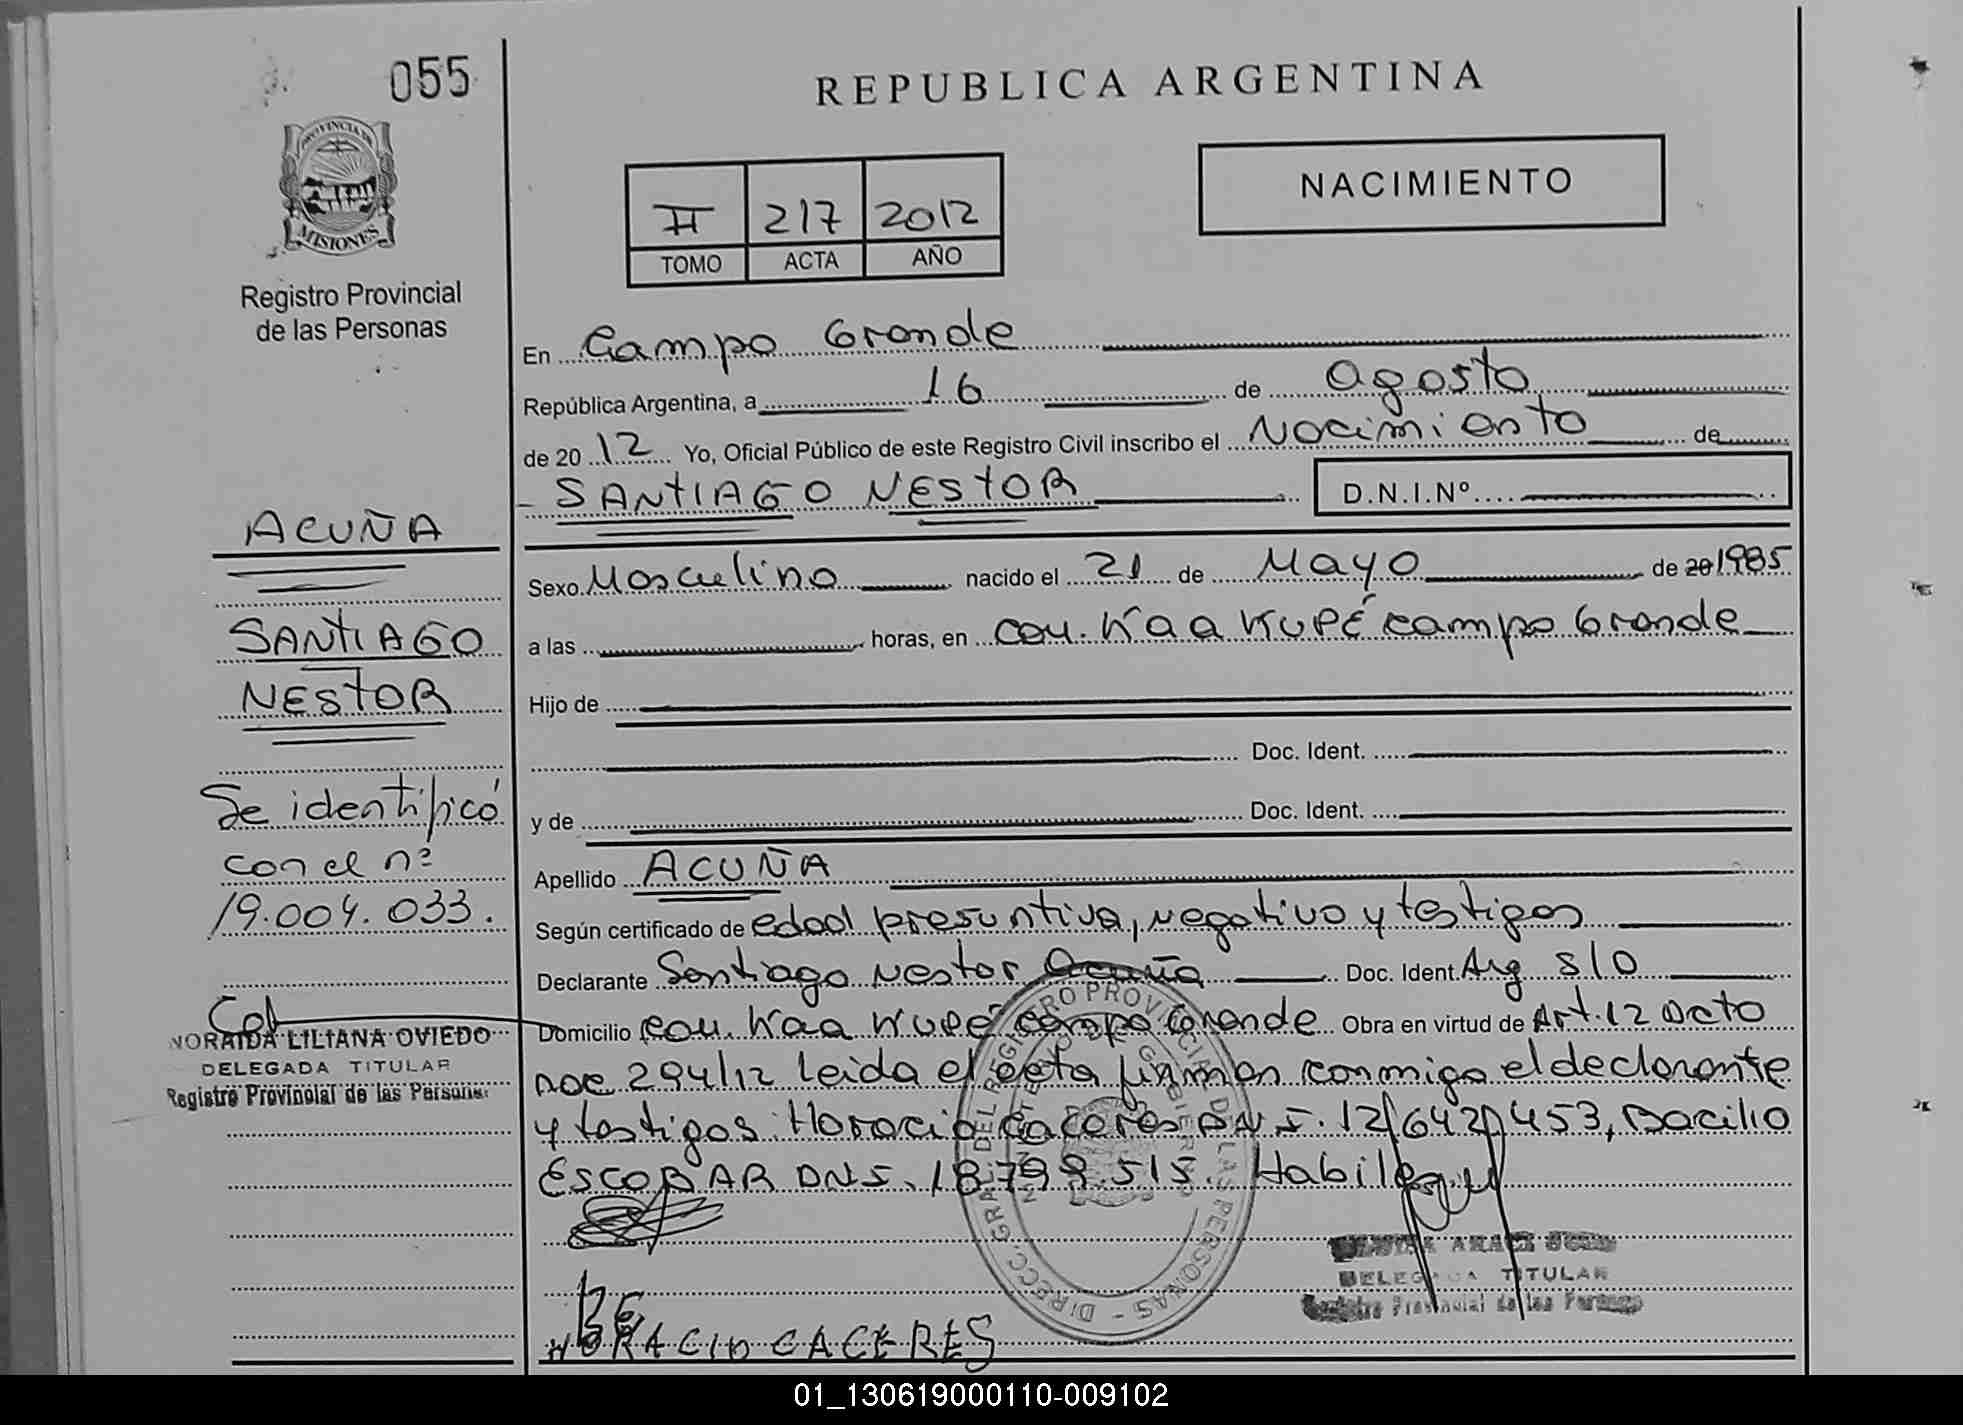 055
REPUBLICA ARGENTINA
PROVINCIA DE
MISIONES
Registro Provincial
de las Personas
II 217 2012
TOMO ACTA AÑO
NACIMIENTO
En Campo Grande
República Argentina, a 16 de agosto
de 2012 Yo, Oficial Público de este Registro Civil inscribo el Nacimiento de
SANTIAGO NESTOR D.N.I.Nº
Sexo Masculino nacido el 21 de Mayo de 20 1985
a las horas, en cou. Kaa Kupé campo Grande
Hijo de
Doc. Ident.
y de Doc. Ident.
Apellido ACUÑA
Según certificado de edad presuntiva, negativo y testigos
Declarante Santiago Nestor Acuña Doc. Ident. Arg S/D
Domicilio cou. Kaa Kupé campo Grande Obra en virtud de Art. 12 Dcto
294/12 leida el acta firman conmigo el declarante
y testigos Horacio Caceres DNI. 12/642/453, Bacilio
ESCOBAR DNI. 18.799.515.
HORACIO CACERES
DELEGADA TITULAR
Registro Provincial de las Personas
DIRECC. GRAL DEL REGISTRO PROVINCIAL DE LAS PERSONAS
ACUÑA
SANTIAGO
NESTOR
Se identificó
con el nº
19.004.033.
NORAIDA LILIANA OVIEDO
DELEGADA TITULAR
Registro Provincial de las Personas
01_130619000110-009102